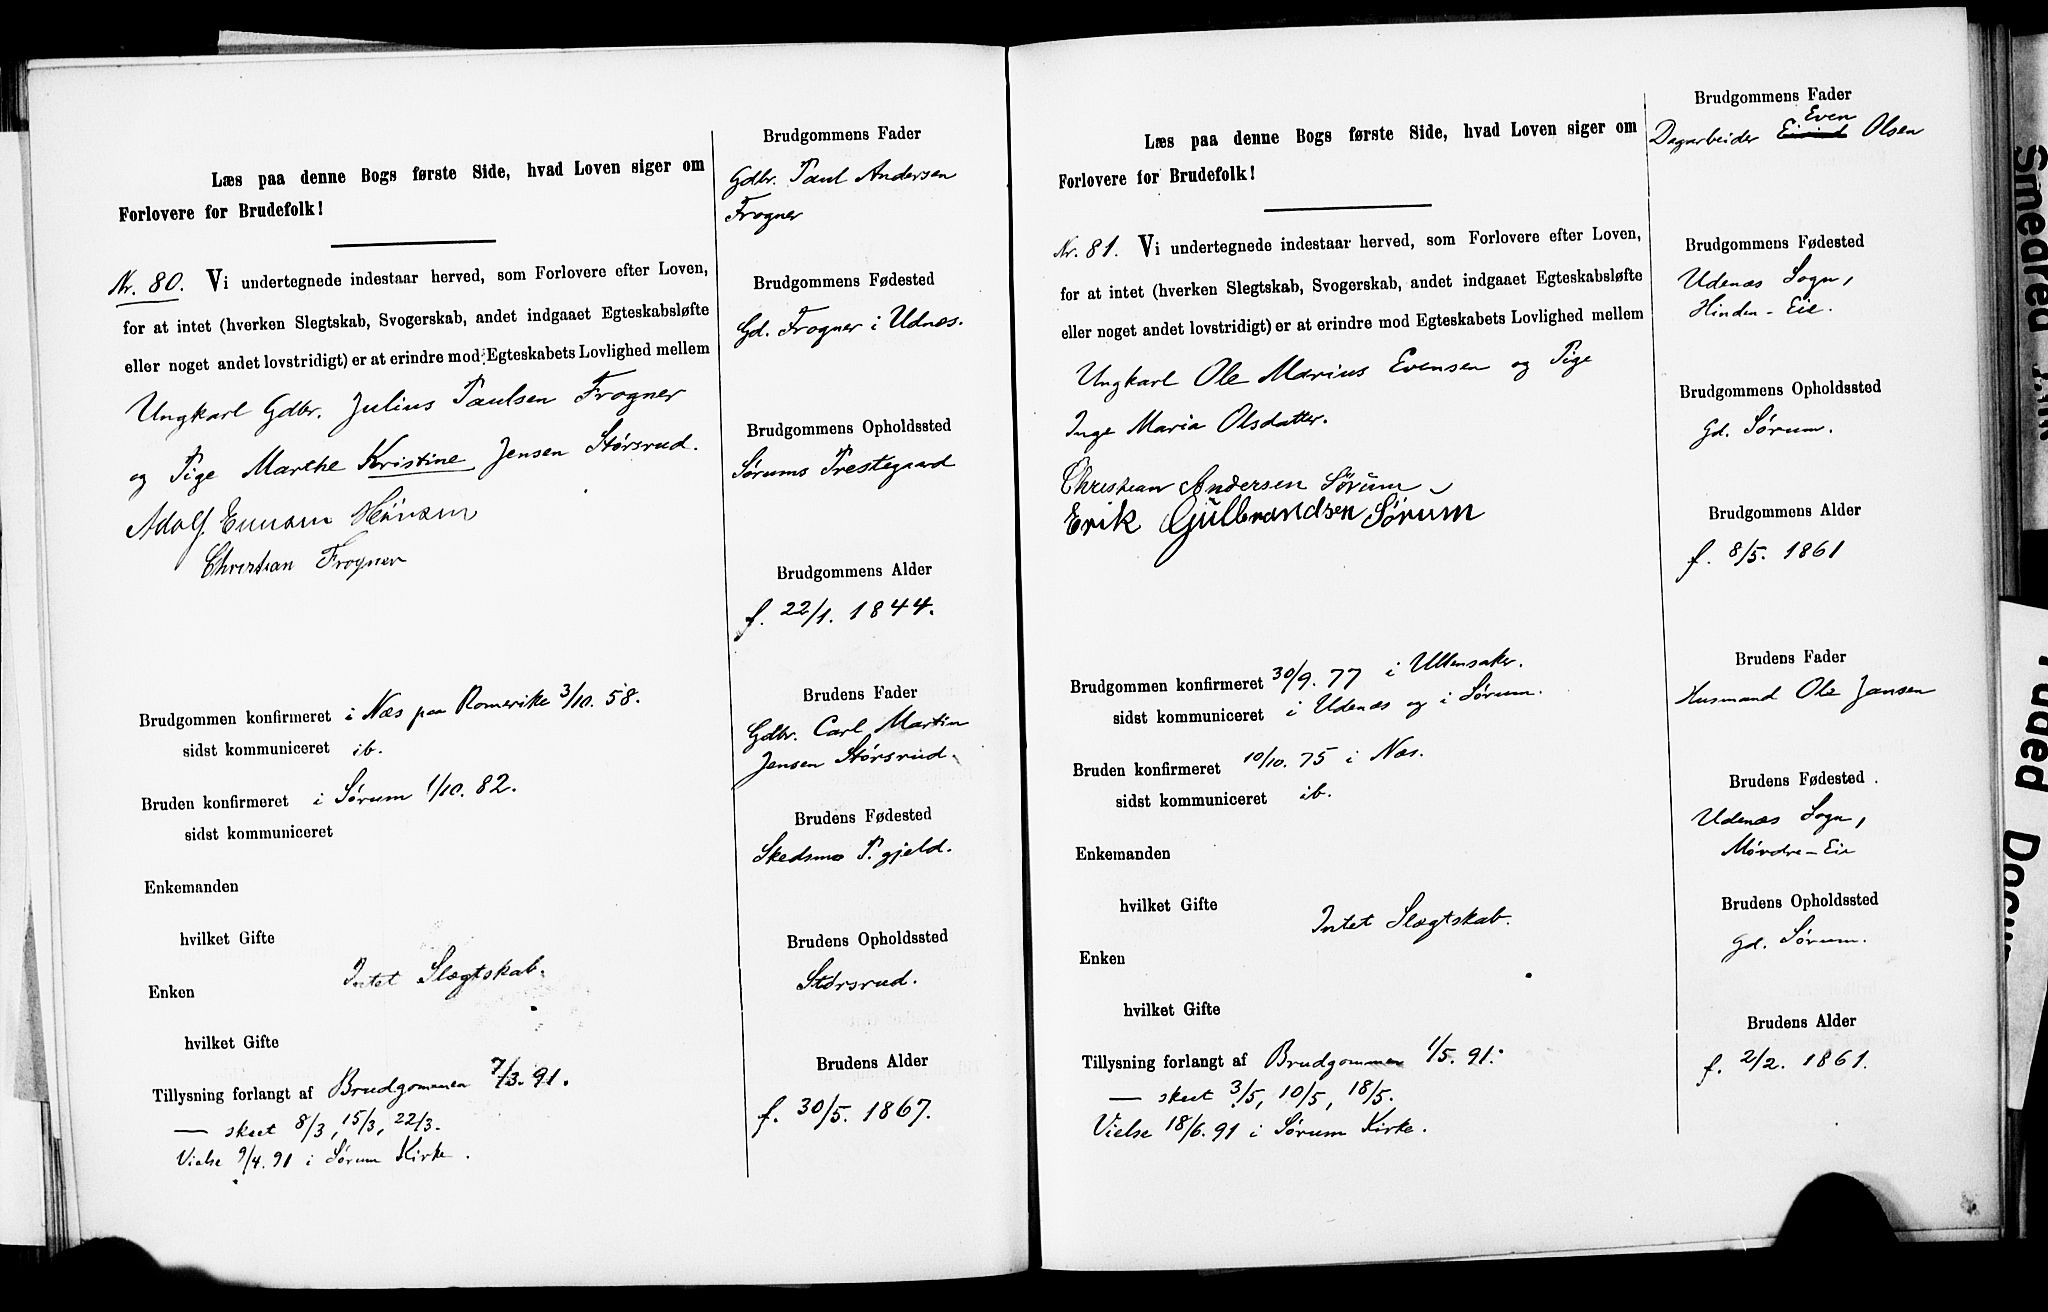 Læs paa denne Bogs første Side, hvad Loven siger om
Forlovere for Brudefolk!
Nr. 80. Vi undertegnede indestaar herved, som Forlovere efter Loven,
for at intet (hverken Slegtskab, Svogerskab, andet indgaaet Egteskabsløfte
eller noget andet lovstridigt) er at erindre mod Egteskabets Lovlighed mellem
Ungkarl Gdbr. Julius Paulsen Frogner
og Pige Marthe Kristine Jensen Störsrud.
Adolf Hansen
Christian Frogner
Brudgommen konfirmeret i Næs paa Romerike 3/10. 58.
sidst kommuniceret ib.
Bruden konfirmeret i Sørum 1/10. 82.
sidst kommuniceret
Enkemanden
hvilket Gifte
Intet Slægtskab.
Enken
hvilket Gifte
Tillysning forlangt af Brudgommen 7/3. 91.
— skeet 8/3, 15/3, 22/3.
Vielse 9/4. 91 i Sørum Kirke.
Brudgommens Fader
Gdbr. Paul Andersen
Frogner
Brudgommens Fødested
Gd. Frogner i Udnæs.
Brudgommens Opholdssted
Sørums Prestegaard
Brudgommens Alder
f. 22/1. 1844.
Brudens Fader
Gdbr. Carl Martin
Jensen Störsrud.
Brudens Fødested
Skedsmo P.gjeld.
Brudens Opholdssted
Störsrud.
Brudens Alder
f. 30/5. 1867.
Læs paa denne Bogs første Side, hvad Loven siger om
Forlovere for Brudefolk!
Nr. 81. Vi undertegnede indestaar herved, som Forlovere efter Loven,
for at intet (hverken Slegtskab, Svogerskab, andet indgaaet Egteskabsløfte
eller noget andet lovstridigt) er at erindre mod Egteskabets Lovlighed mellem
Ungkarl Ole Marius Evensen og Pige
Inge Maria Olsdatter.
Christian Andersen Sørum
Erik Gulbrandsen Sørum
Brudgommen konfirmeret 30/9. 77 i Ullensaker.
sidst kommuniceret i Udenæs og i Sørum.
Bruden konfirmeret 10/10. 75 i Næs.
sidst kommuniceret ib.
Enkemanden
hvilket Gifte
Intet Slægtskab.
Enken
hvilket Gifte
Tillysning forlangt af Brudgommen 1/5. 91.
— skeet 3/5, 10/5, 18/5.
Vielse 18/6. 91 i Sørum Kirke.
Brudgommens Fader
Even
Dagarbeider Olsen
Brudgommens Fødested
Udenæs Sogn,
Hinden-Eie.
Brudgommens Opholdssted
Gd. Sørum.
Brudgommens Alder
f. 8/5. 1861
Brudens Fader
Husmand Ole Jansen
Brudens Fødested
Udenæs Sogn,
Mørdre-Eie
Brudens Opholdssted
Gd. Sørum.
Brudens Alder
f. 2/2. 1861.